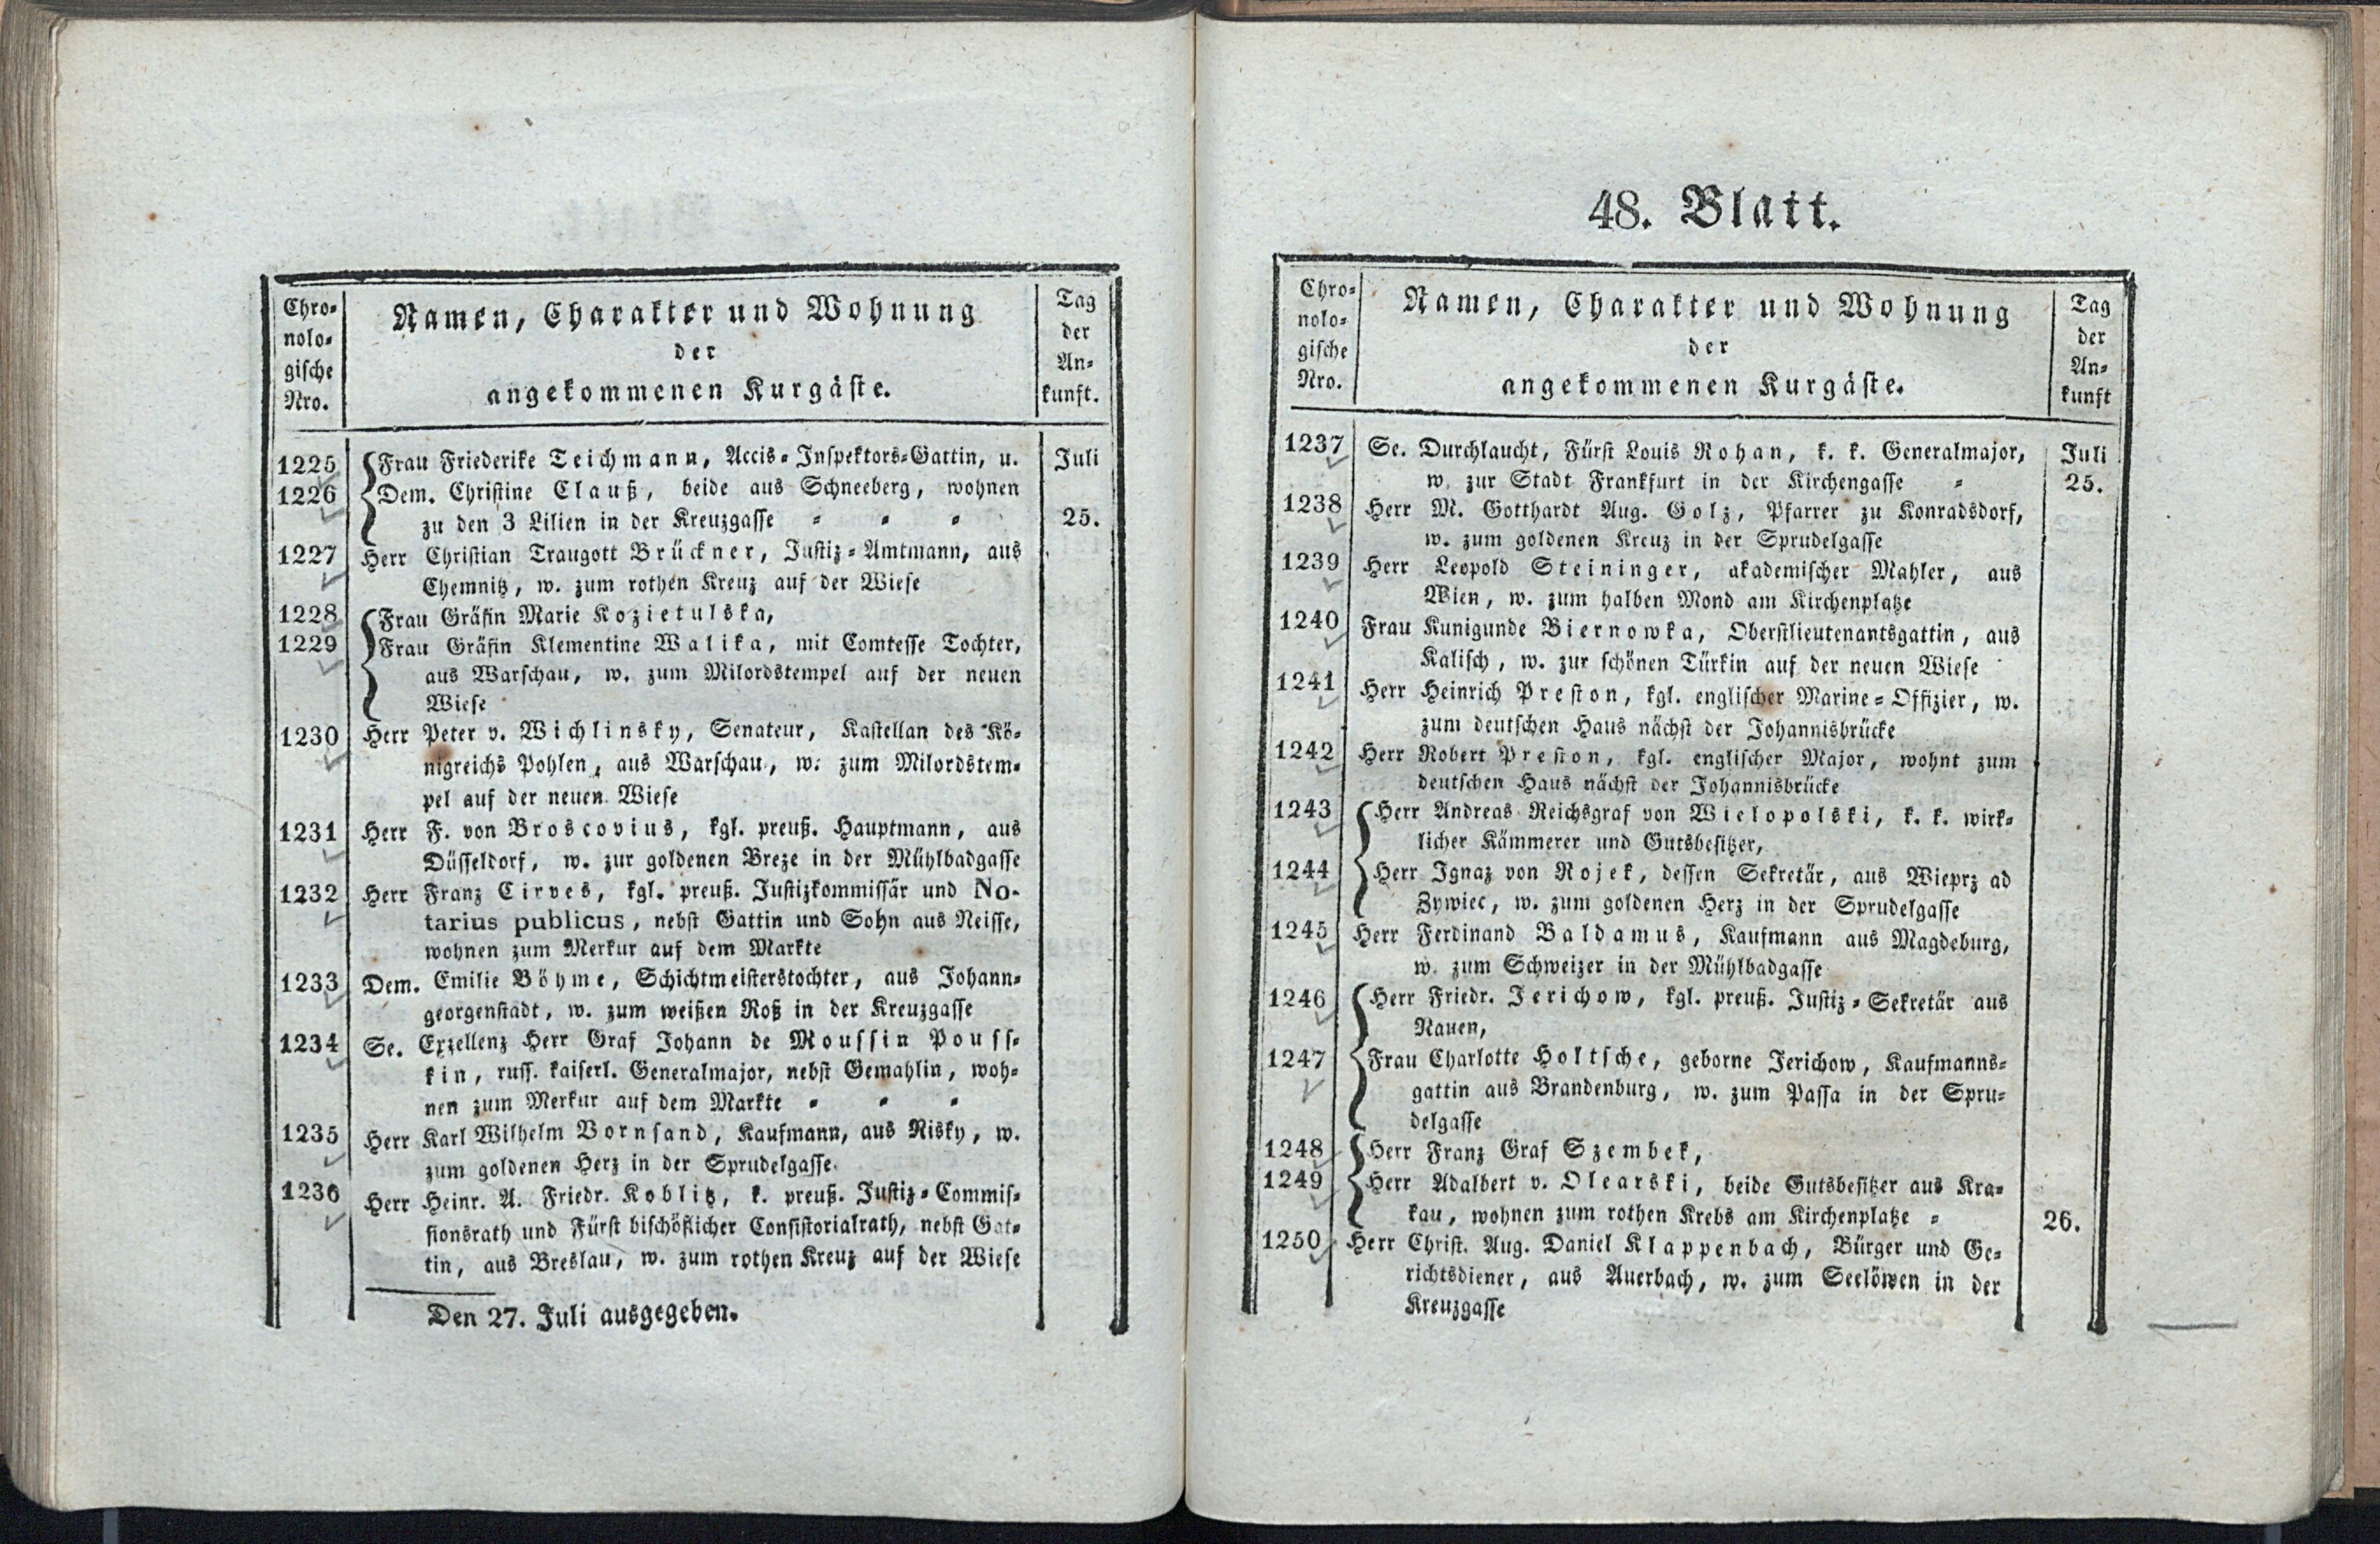 Chro-
nolo-
gische
Nro.
Namen, Charakter und Wohnung
der
angekommenen Kurgäste.
Tag
der
An-
kunft.
1225 Frau Friederike Teichmann, Accis-Inspektors-Gattin, u. Juli
1226 Dem. Christine Clauß, beide aus Schneeberg, wohnen
zu den 3 Lilien in der Kreuzgasse - - - 25.
1227 Herr Christian Traugott Brückner, Justiz-Amtmann, aus
Chemnitz, w. zum rothen Kreuz auf der Wiese
1228 Frau Gräfin Marie Kozietulska,
1229 Frau Gräfin Klementine Walika, mit Comtesse Tochter,
aus Warschau, w. zum Milordstempel auf der neuen
Wiese
1230 Herr Peter v. Wichlinsky, Senateur, Kastellan des Kö-
nigreichs Pohlen, aus Warschau, w. zum Milordstem-
pel auf der neuen Wiese
1231 Herr F. von Broscovius, kgl. preuß. Hauptmann, aus
Düsseldorf, w. zur goldenen Breze in der Mühlbadgasse
1232 Herr Franz Cirves, kgl. preuß. Justizkommissär und No-
tarius publicus, nebst Gattin und Sohn aus Neisse,
wohnen zum Merkur auf dem Markte
1233 Dem. Emilie Böhme, Schichtmeisterstochter, aus Johann-
georgenstadt, w. zum weißen Roß in der Kreuzgasse
1234 Se. Exzellenz Herr Graf Johann de Moussin Pouss-
kin, russ. kaiserl. Generalmajor, nebst Gemahlin, woh-
nen zum Merkur auf dem Markte - - -
1235 Herr Karl Wilhelm Bornsand, Kaufmann, aus Nisky, w.
zum goldenen Herz in der Sprudelgasse.
1236 Herr Heinr. A. Friedr. Koblitz, k. preuß. Justiz-Commis-
sionsrath und Fürst bischöflicher Consistorialrath, nebst Gat-
tin, aus Breslau, w. zum rothen Kreuz auf der Wiese
Den 27. Juli ausgegeben.
48. Blatt.
Chro-
nolo-
gische
Nro.
Namen, Charakter und Wohnung
der
angekommenen Kurgäste.
Tag
der
An-
kunft
1237 Se. Durchlaucht, Fürst Louis Rohan, k. k. Generalmajor, Juli
w. zur Stadt Frankfurt in der Kirchengasse - 25.
1238 Herr M. Gotthardt Aug. Golz, Pfarrer zu Konradsdorf,
w. zum goldenen Kreuz in der Sprudelgasse
1239 Herr Leopold Steininger, akademischer Mahler, aus
Wien, w. zum halben Mond am Kirchenplatze
1240 Frau Kunigunde Biernowka, Oberstlieutenantsgattin, aus
Kalisch, w. zur schönen Türkin auf der neuen Wiese
1241 Herr Heinrich Preston, kgl. englischer Marine-Offizier, w.
zum deutschen Haus nächst der Johannisbrücke
1242 Herr Robert Preston, kgl. englischer Major, wohnt zum
deutschen Haus nächst der Johannisbrücke
1243 Herr Andreas Reichsgraf von Wielopolski, k. k. wirk-
licher Kämmerer und Gutsbesitzer,
1244 Herr Ignaz von Rojek, dessen Sekretär, aus Wieprz ad
Zywiec, w. zum goldenen Herz in der Sprudelgasse
1245 Herr Ferdinand Baldamus, Kaufmann aus Magdeburg,
w. zum Schweizer in der Mühlbadgasse
1246 Herr Friedr. Jerichow, kgl. preuß. Justiz-Sekretär aus
Nauen,
1247 Frau Charlotte Holtsche, geborne Jerichow, Kaufmanns-
gattin aus Brandenburg, w. zum Passa in der Spru-
delgasse
1248 Herr Franz Graf Szembek,
1249 Herr Adalbert v. Olearski, beide Gutsbesitzer aus Kra-
kau, wohnen zum rothen Krebs am Kirchenplatze - 26.
1250 Herr Christ. Aug. Daniel Klappenbach, Bürger und Ge-
richtsdiener, aus Auerbach, w. zum Seelöwen in der
Kreuzgasse